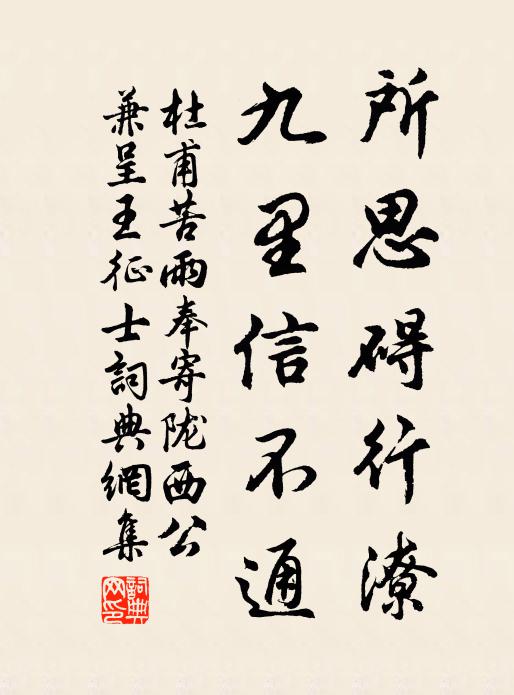 所思碍行潦
九里信不通
杜甫苦雨奉寄陇西公
兼呈王征士詞典網集
詞典网印